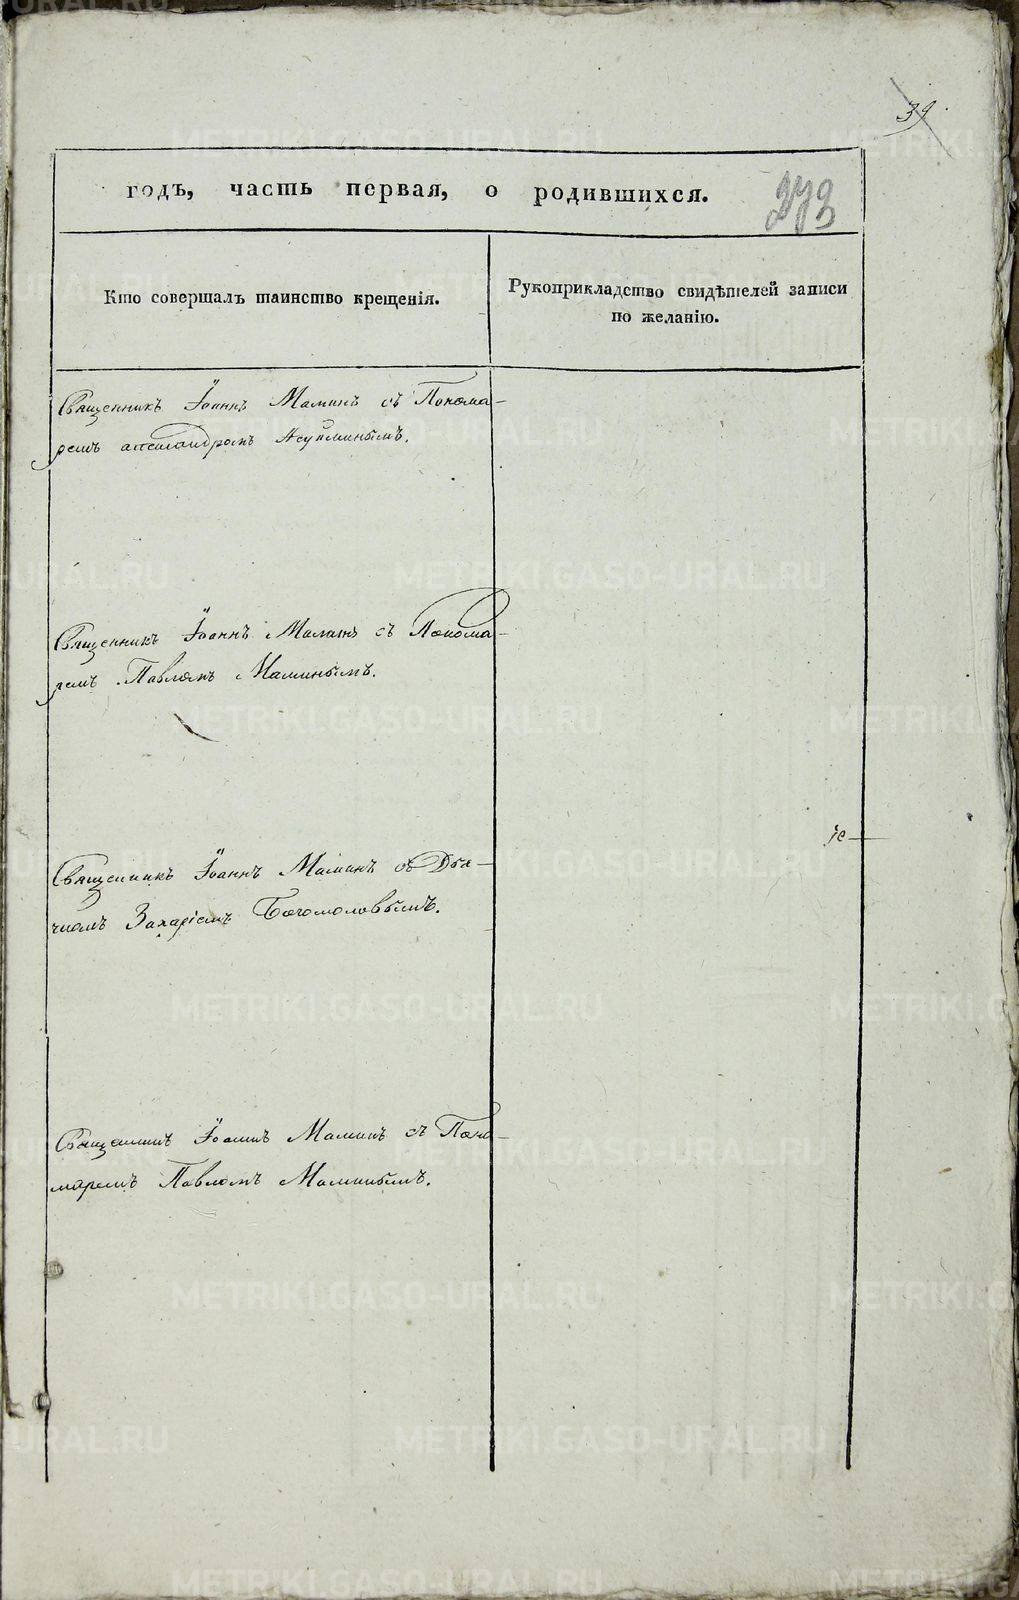 39
годъ, часть первая, о родившихся.
273
Кто совершалъ таинство крещенія.
Рукоприкладство свидѣтелей записи
по желанію.
Священникъ Іоаннъ Маминъ съ Понома-
ремъ Александромъ
Священникъ Іоаннъ Маминъ съ Понома-
ремъ Павломъ Маминымъ.
Священникъ Іоаннъ Маминъ съ Дья-
чкомъ Захаріемъ Богомоловымъ.
Священникъ Іоаннъ Маминъ съ Поно-
маремъ Павломъ Маминымъ.
METRIKI.GASO-URAL.RU